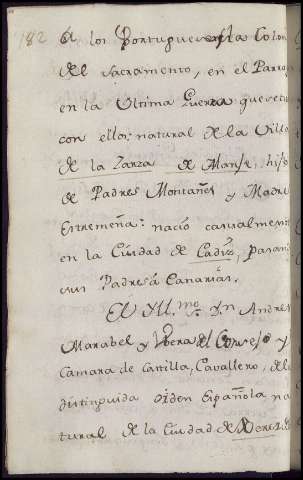 182 á los Portugueses la Colon
del Sacramento, en el Parag
en la Ultima Guerra que retu
con ellos: natural de la Villa
de la Zarza de Alanje, hijo
de Padres Montañes y Madre
Estremeña: nació casualment
en la Ciudad de Cadiz, pasan
sus Padres á Canarias.
El Yll.mo S.r Dn Andres
Marabel y Vera del Consejo y
Camara de Castilla, Cavallero, de la
distinguida orden Española na
tural de la Ciudad de Xerez